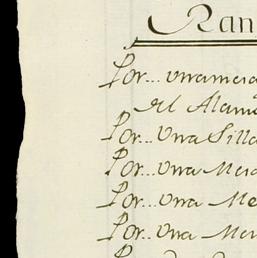 Ran
Por... vna mesa
del Alam
Por.. Vna Silla
Por.. Vna Mesa
Por.. Vna Me
Por.. Vna Me